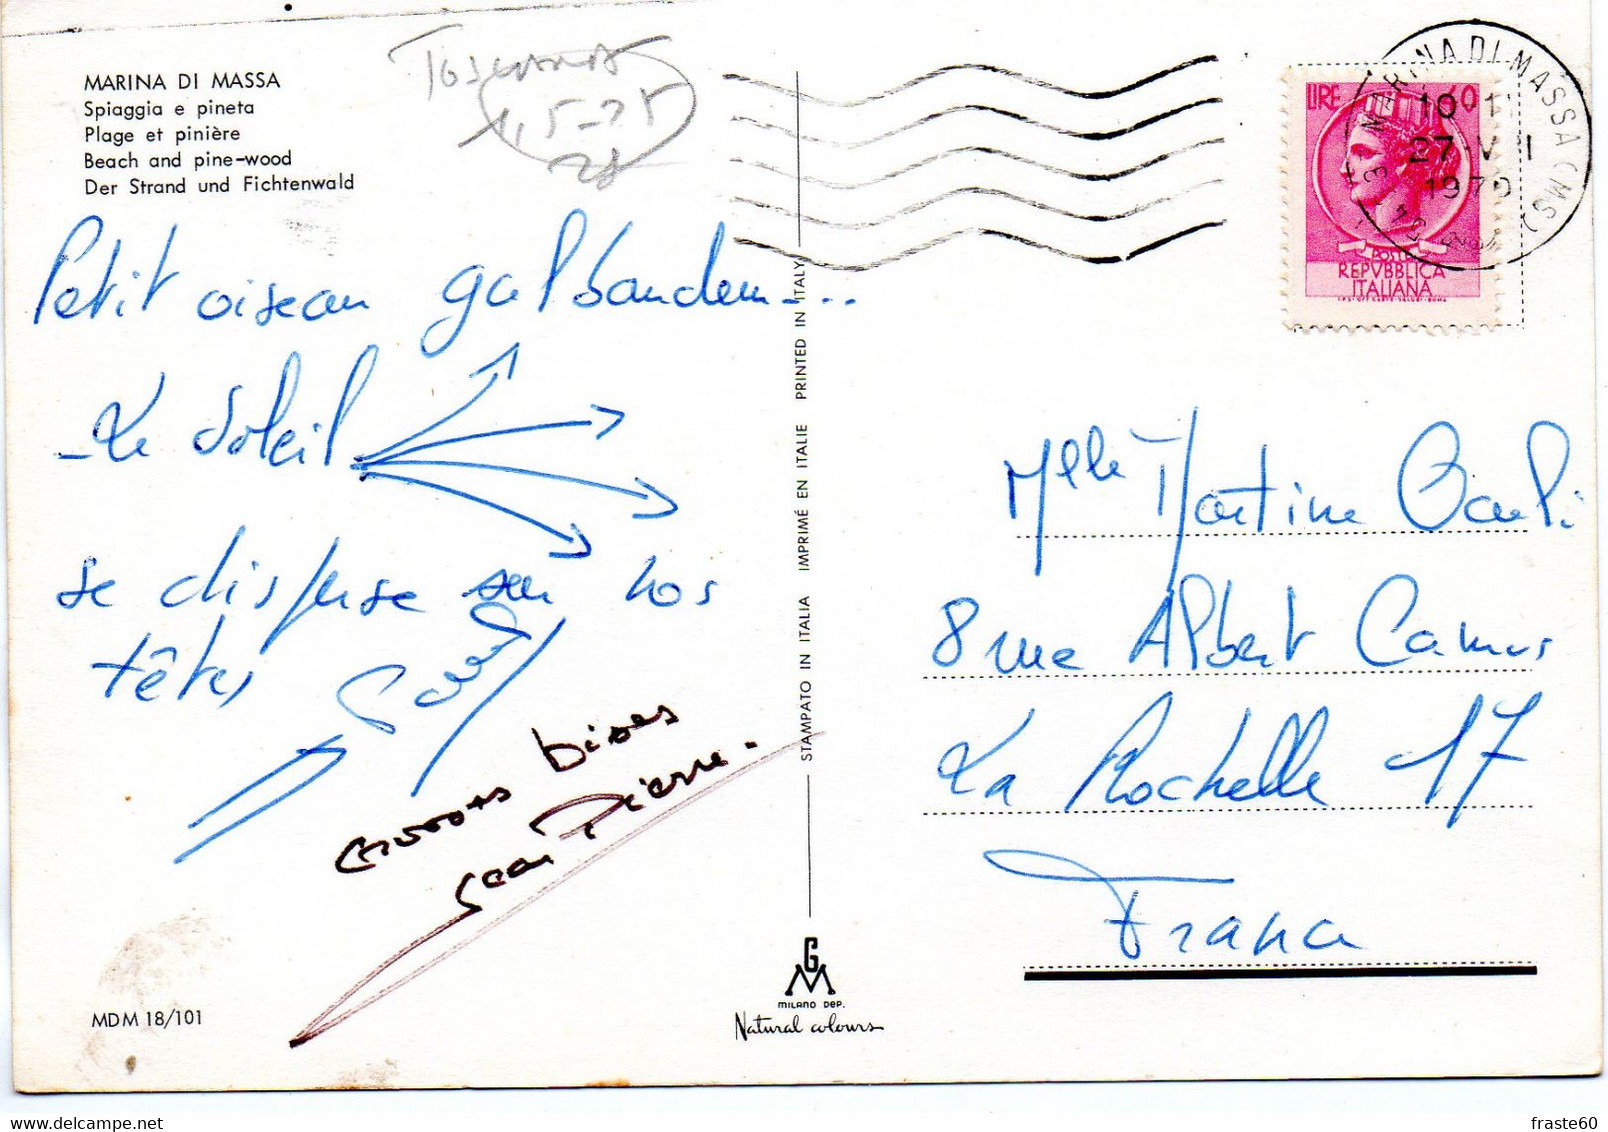 MARINA DI MASSA
Spiaggia e pineta
Plage et pinière
Beach and pine-wood
Der Strand und Fichtenwald
Toscana
Petit oiseau
- Le Soleil
se disperse sur nos
têtes
Grosses bises
Jean Pierre.
MDM 18/101
STAMPATO IN ITALIA IMPRIMÉ EN ITALIE PRINTED IN ITALY
GM
MILANO DEP.
Natural colours
MARINA DI MASSA (MS)
10-11
27 VII
1970
LIRE 60
POSTE
REPVBBLICA
ITALIANA
Mlle Martine
8 rue Albert Camus
La Rochelle 17
France
fraste60